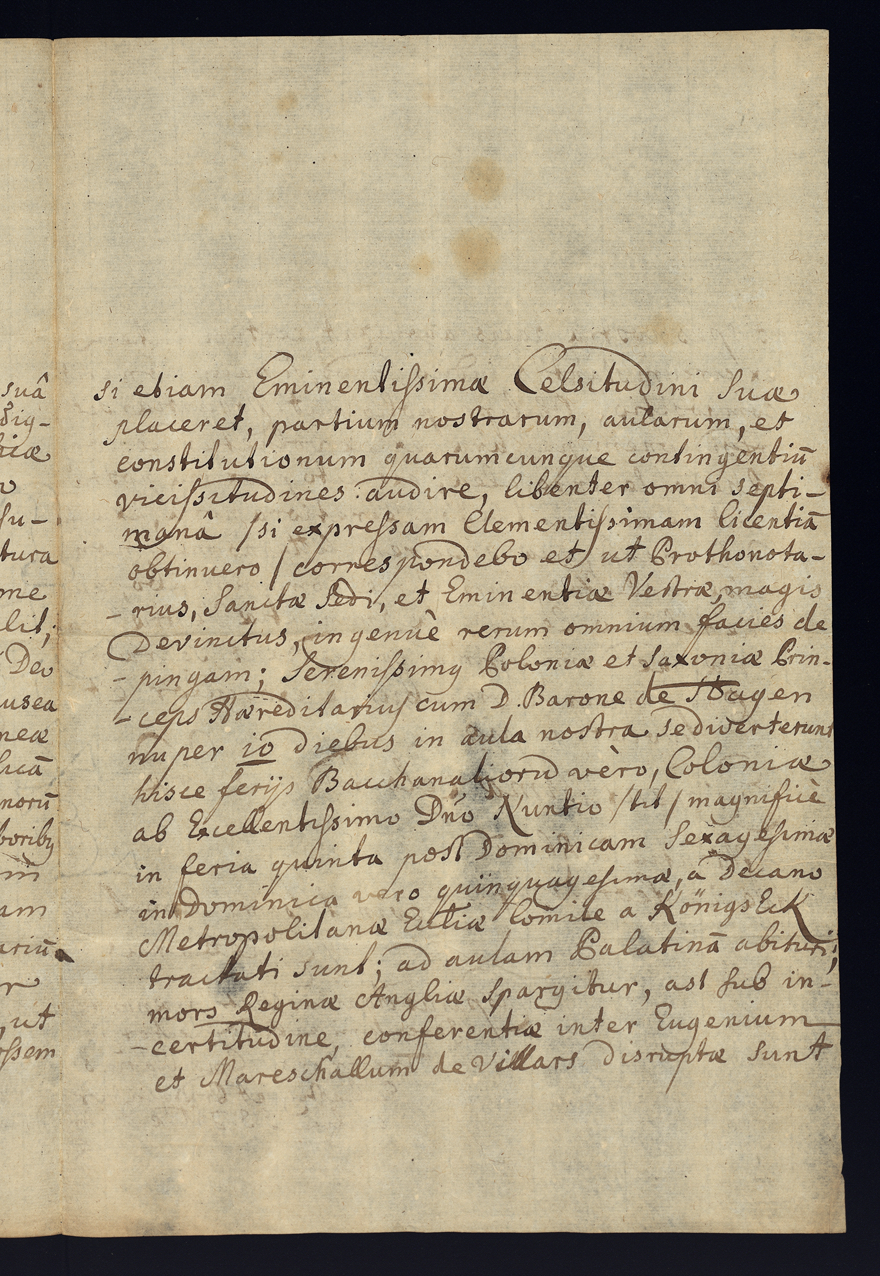 suâ
dig-
su-
tura
me
lit;
Deo
usea
neæ
norũ
boribꝫ
um
ariũ
r
, ut
ossem
si etiam Eminentissimæ Celsitudini Suæ
placeret, partium nostrarum, aularum, et
constitutionum quarumcunque contingentiũ
vicissitudines audire, libenter omni septi-
manâ /si expressam Clementissimam licentiã
obtinuero/ correspondebo et ut Prothonota-
-rius, Sanctæ Sedi, et Eminentiæ Vestræ magis
Devinctus, ingenuè rerum omnium facies de
-pingam; Serenissimꝰ Poloniæ et Saxoniæ Prin-
-ceps Hæreditariꝰ cum D. Barone de Hagen
nuper 10 diebus in aula nostra se diverterunt
hisce ferijs Bacchanaliorũ vèro, Coloniæ
ab Excellentissimo Dño Nuntio /tit/ magnificè
in feria quinta post Dominicam Sexagesimæ
in Dominica vero quinquagesimæ, a Decano
Metropolitanæ Ecclîæ Comite a KönigsEck
tractati sunt; ad aulam Palatinã abituri;
mors Reginæ Angliæ spargitur, ast sub in-
-certitudine, conferentiæ inter Eugenium
et Mareschallum de Villars disruptæ sunt